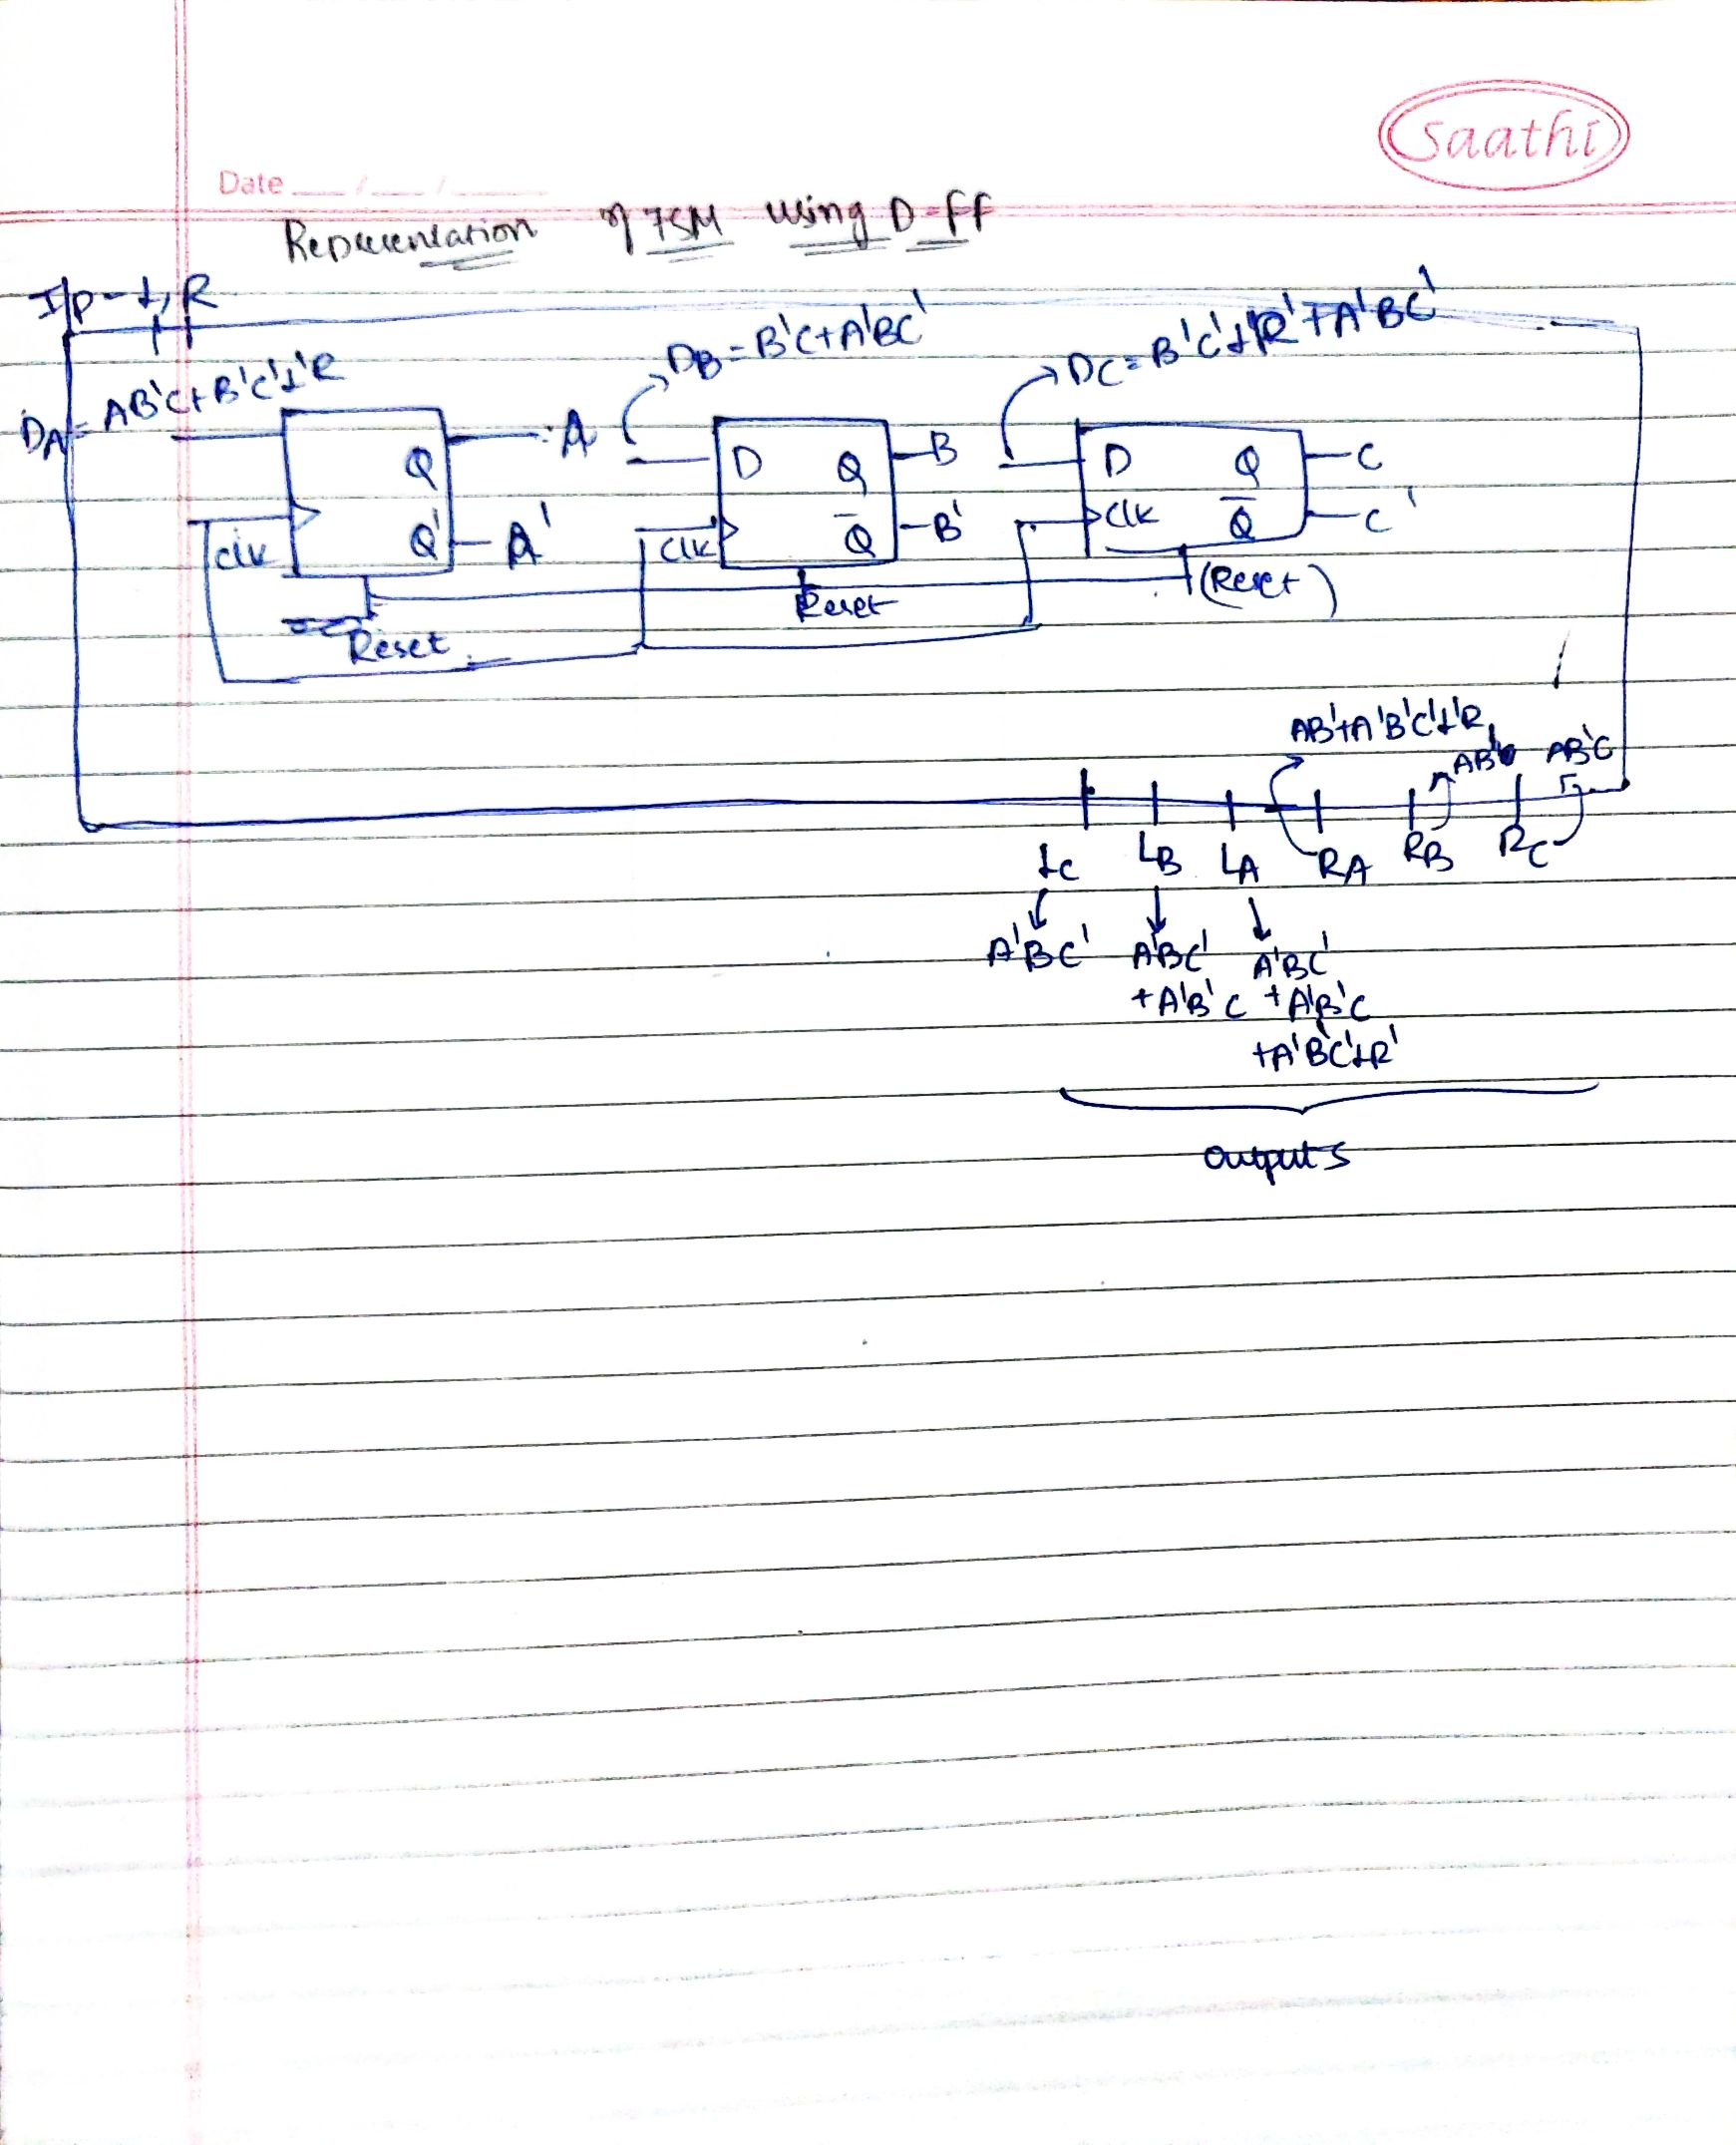 Saathi
Date
Representation of FSM using D-FF
I/p - L, R
DA = AB'C+B'C'L'R
DB = B'C+A'BC'
DC = B'C'L'R'+A'BC'
Q
A
D Q
B
D Q
C
clk
Q'
A'
clk
Q̅
B'
clk
Q̅
C'
Reset
Reset
(Reset)
AB'+A'B'C'L'R
AB'C
LC LB LA RA RB RC
A'BC' A'BC' A'BC'
+A'B'C +A'B'C
+A'B'C'LR'
outputs